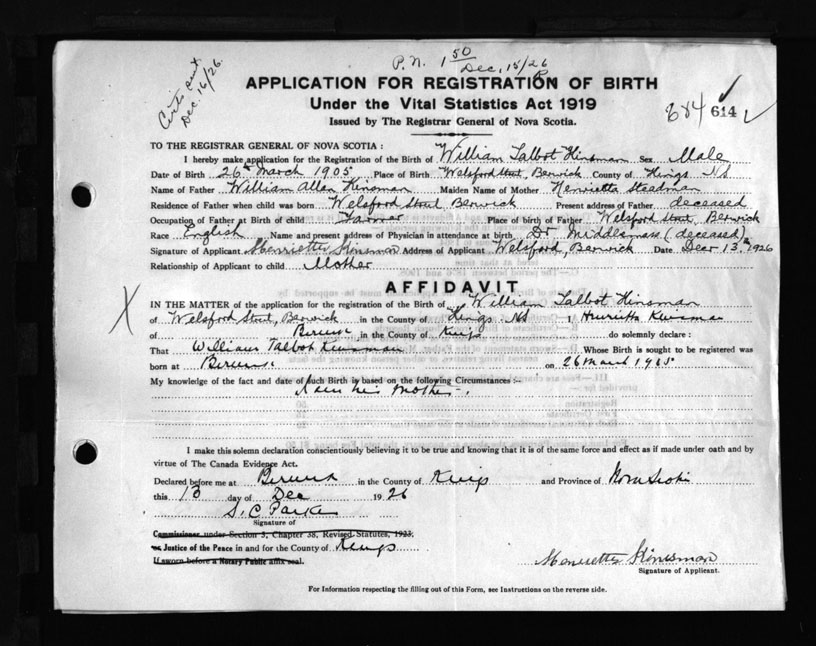 P.N. 1 50
Dec, 15/26
Certs sent
Dec. 16/26.
APPLICATION FOR REGISTRATION OF BIRTH
Under the Vital Statistics Act 1919
Issued by The Registrar General of Nova Scotia.
684 614
TO THE REGISTRAR GENERAL OF NOVA SCOTIA :
I hereby make application for the Registration of the Birth of William Talbot Kinsman Sex Male
Date of Birth 26th March 1905 Place of Birth Welsford Street, Berwick County of Kings NS
Name of Father William Allan Kinsman Maiden Name of Mother Henrietta Steadman
Residence of Father when child was born Welsford Street Berwick Present address of Father deceased
Occupation of Father at Birth of child Farmer Place of birth of Father Welsford Street, Berwick
Race English Name and present address of Physician in attendance at birth Dr Middlemass (deceased)
Signature of Applicant Henrietta Kinsman Address of Applicant Welsford, Berwick Date Decr 13th 1926
Relationship of Applicant to child Mother
AFFIDAVIT
IN THE MATTER of the application for the registration of the Birth of William Talbot Kinsman
of Welsford Street, Berwick in the County of Kings NS I, Henrietta Kinsman
of Berwick in the County of Kings do solemnly declare :
That William Talbot Kinsman Whose Birth is sought to be registered was
born at Berwick on 26 March 1905
My knowledge of the fact and date of such Birth is based on the following Circumstances :–
I am his Mother.
I make this solemn declaration conscientiously believing it to be true and knowing that it is of the same force and effect as if made under oath and by
virtue of The Canada Evidence Act.
Declared before me at Berwick in the County of Kings and Province of Nova Scotia
this 13 day of Dec 1926
S. C. Parker
Signature of
Commissioner under Section 5, Chapter 38, Revised Statutes, 1923.
or Justice of the Peace in and for the County of Kings
If sworn before a Notary Public affix seal.
Henrietta Kinsman
Signature of Applicant.
For Information respecting the filling out of this Form, see Instructions on the reverse side.